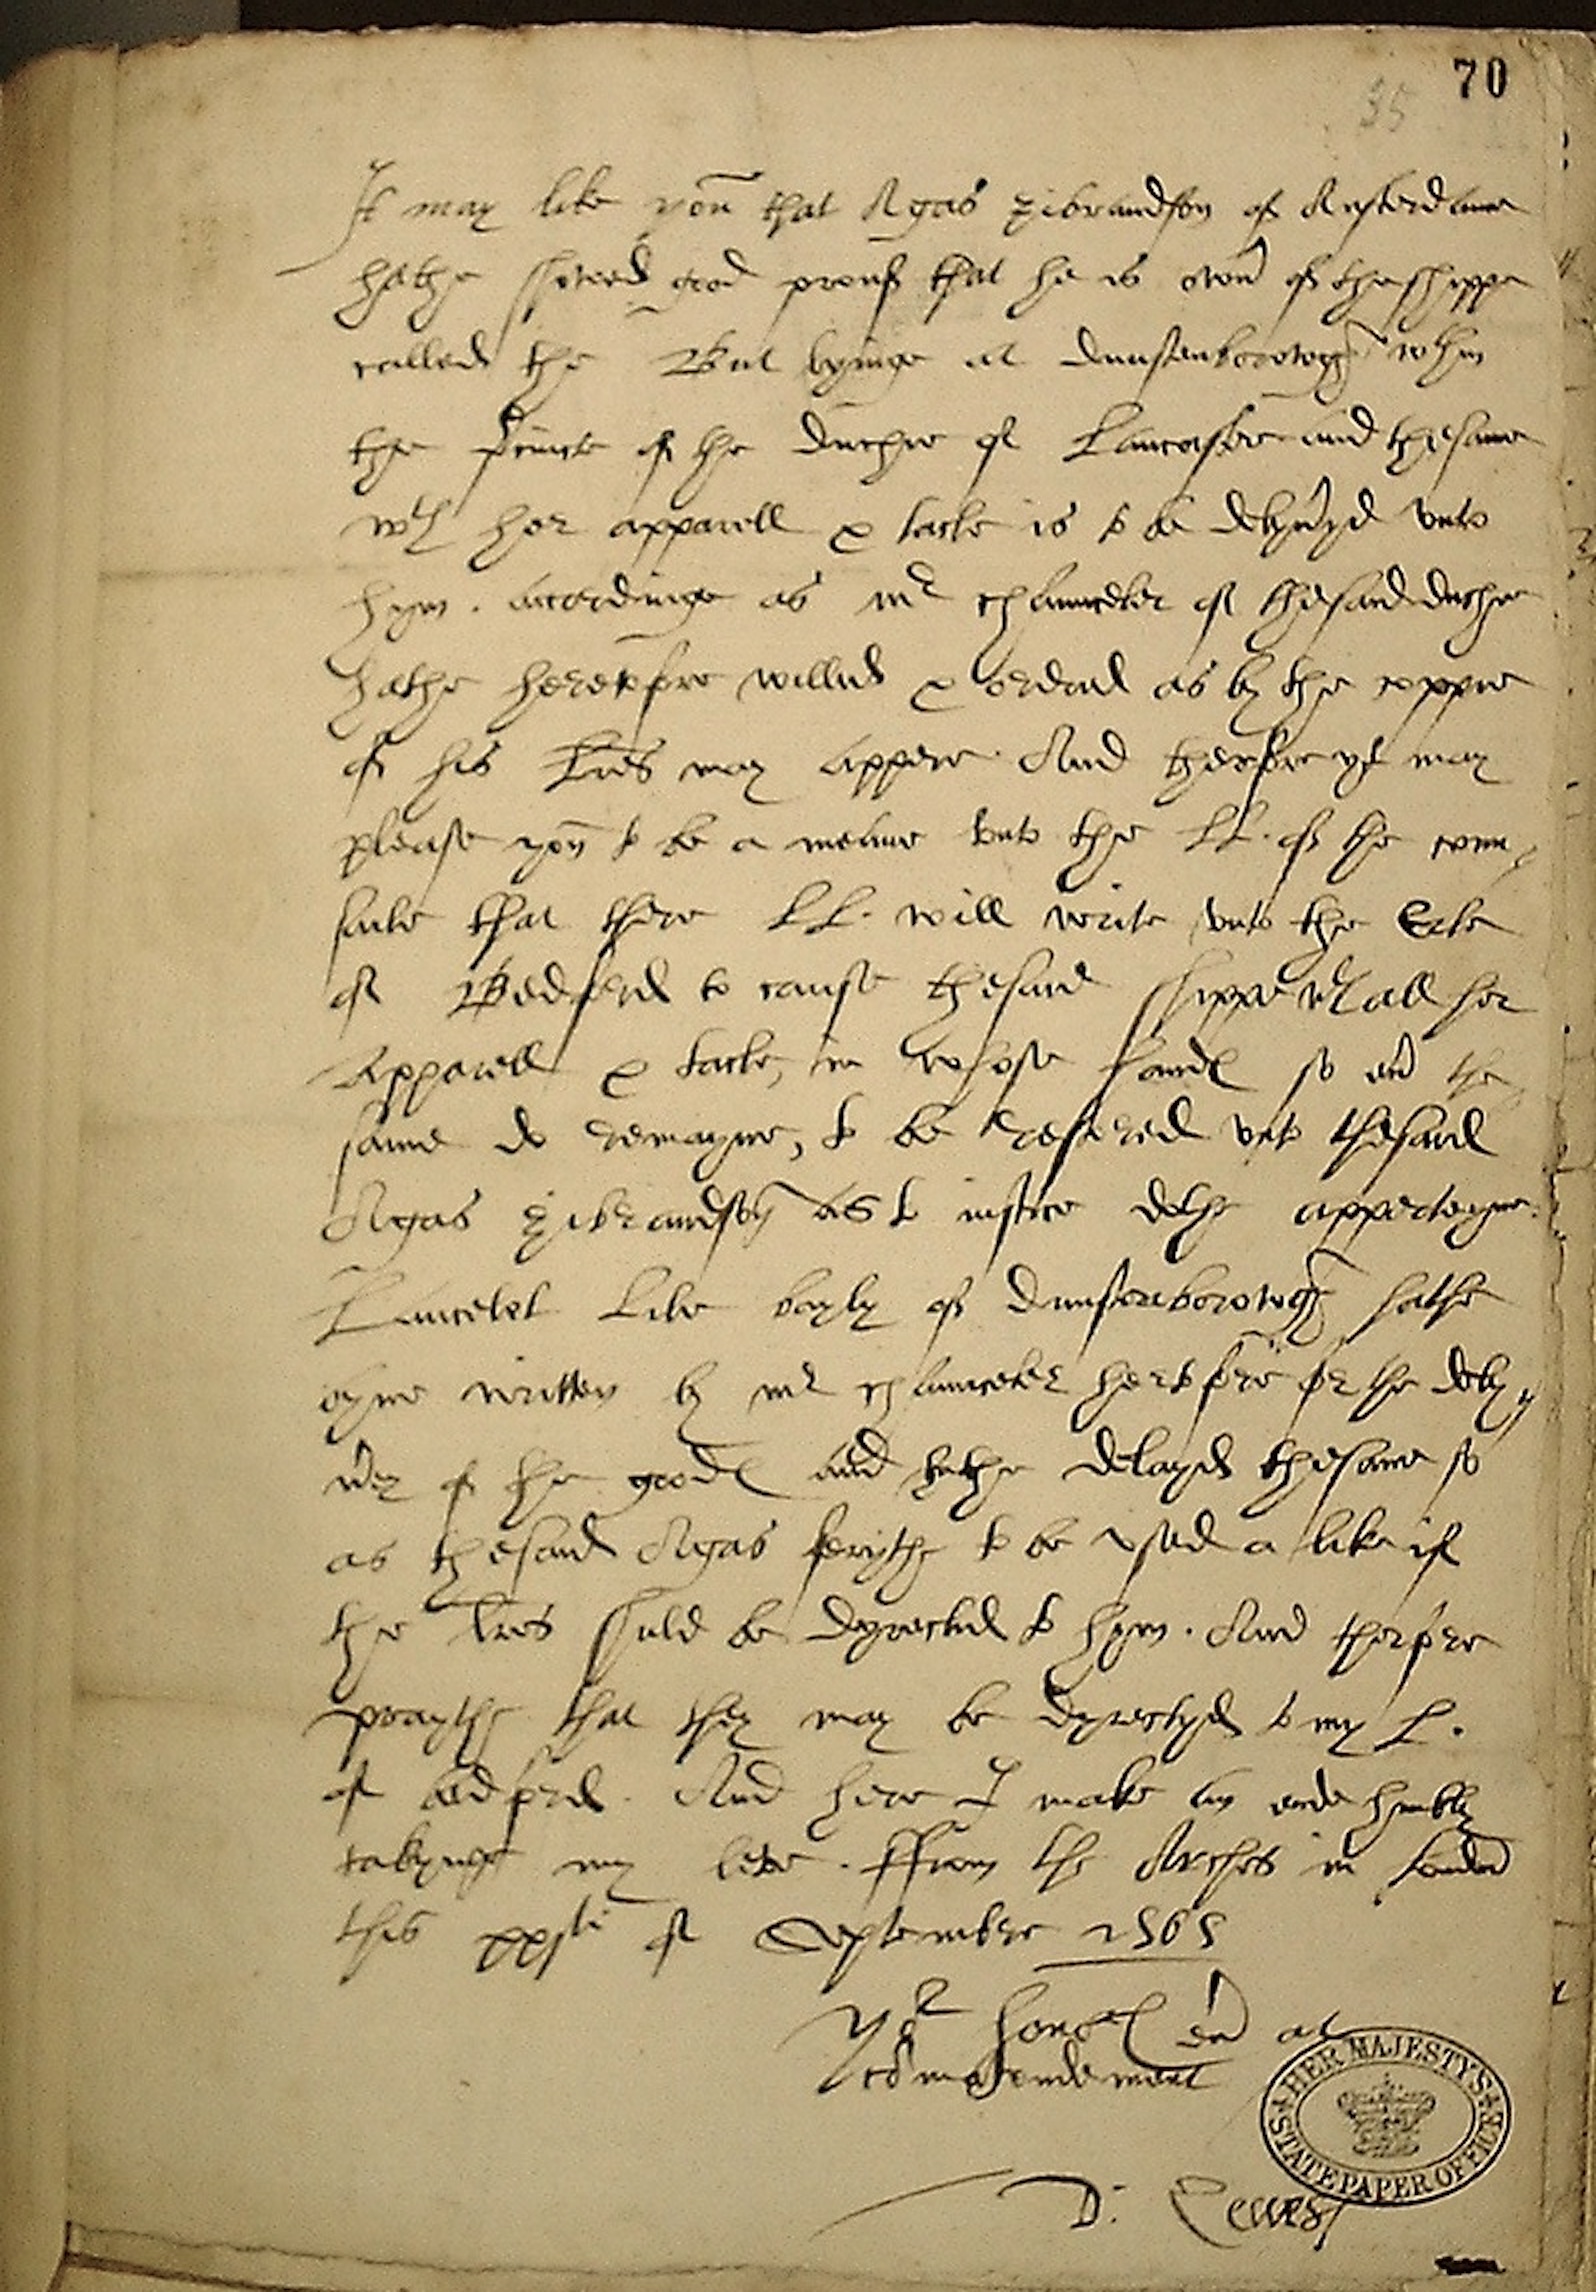 70
35
It may like you that Agas zibrandson of Amsterdame
hathe shewed good prouf that he is owner of the shippe
called the Bul lyinge at Dunstenborowgh within
the of the Duchie of Lancaster and thesame
wth her apparell & tacle is to be delyueryd vnto
hym . accordinge as mr chaunceler of thesaid duchie
hathe heretofore willed & ordred as by the coppie
of his lres may appere And therfore yt may
please you to be a meane vnto the LL. of the coun
saile that there LL. will write vnto the Erle
of Bedford to cause thesaid shippe wth all her
apparell & tacle, in whose hands so euer the
same do remayne, to be restored vnto thesaid
Agas zibrandson as to iustice dothe apperteyne.
Lancelot bayly of Dunstenborowgh hathe
byne written by mr chaunceler hertofore for the dely
uery of the goods and hathe delayed thesame so
as thesaid Agas ferythe to be vsed a like if
the lres shuld be dyrected to hym . And therfore
praythe that they may be dyrectyd to my L.
of bedford . And here I make an ende humbly
takynge my leve . ffrom the Arches in London
this xxjti of Septembre 1565
yor honors euer at
commaundement
D: Lewes
HER MAJESTY'S STATE PAPER OFFICE